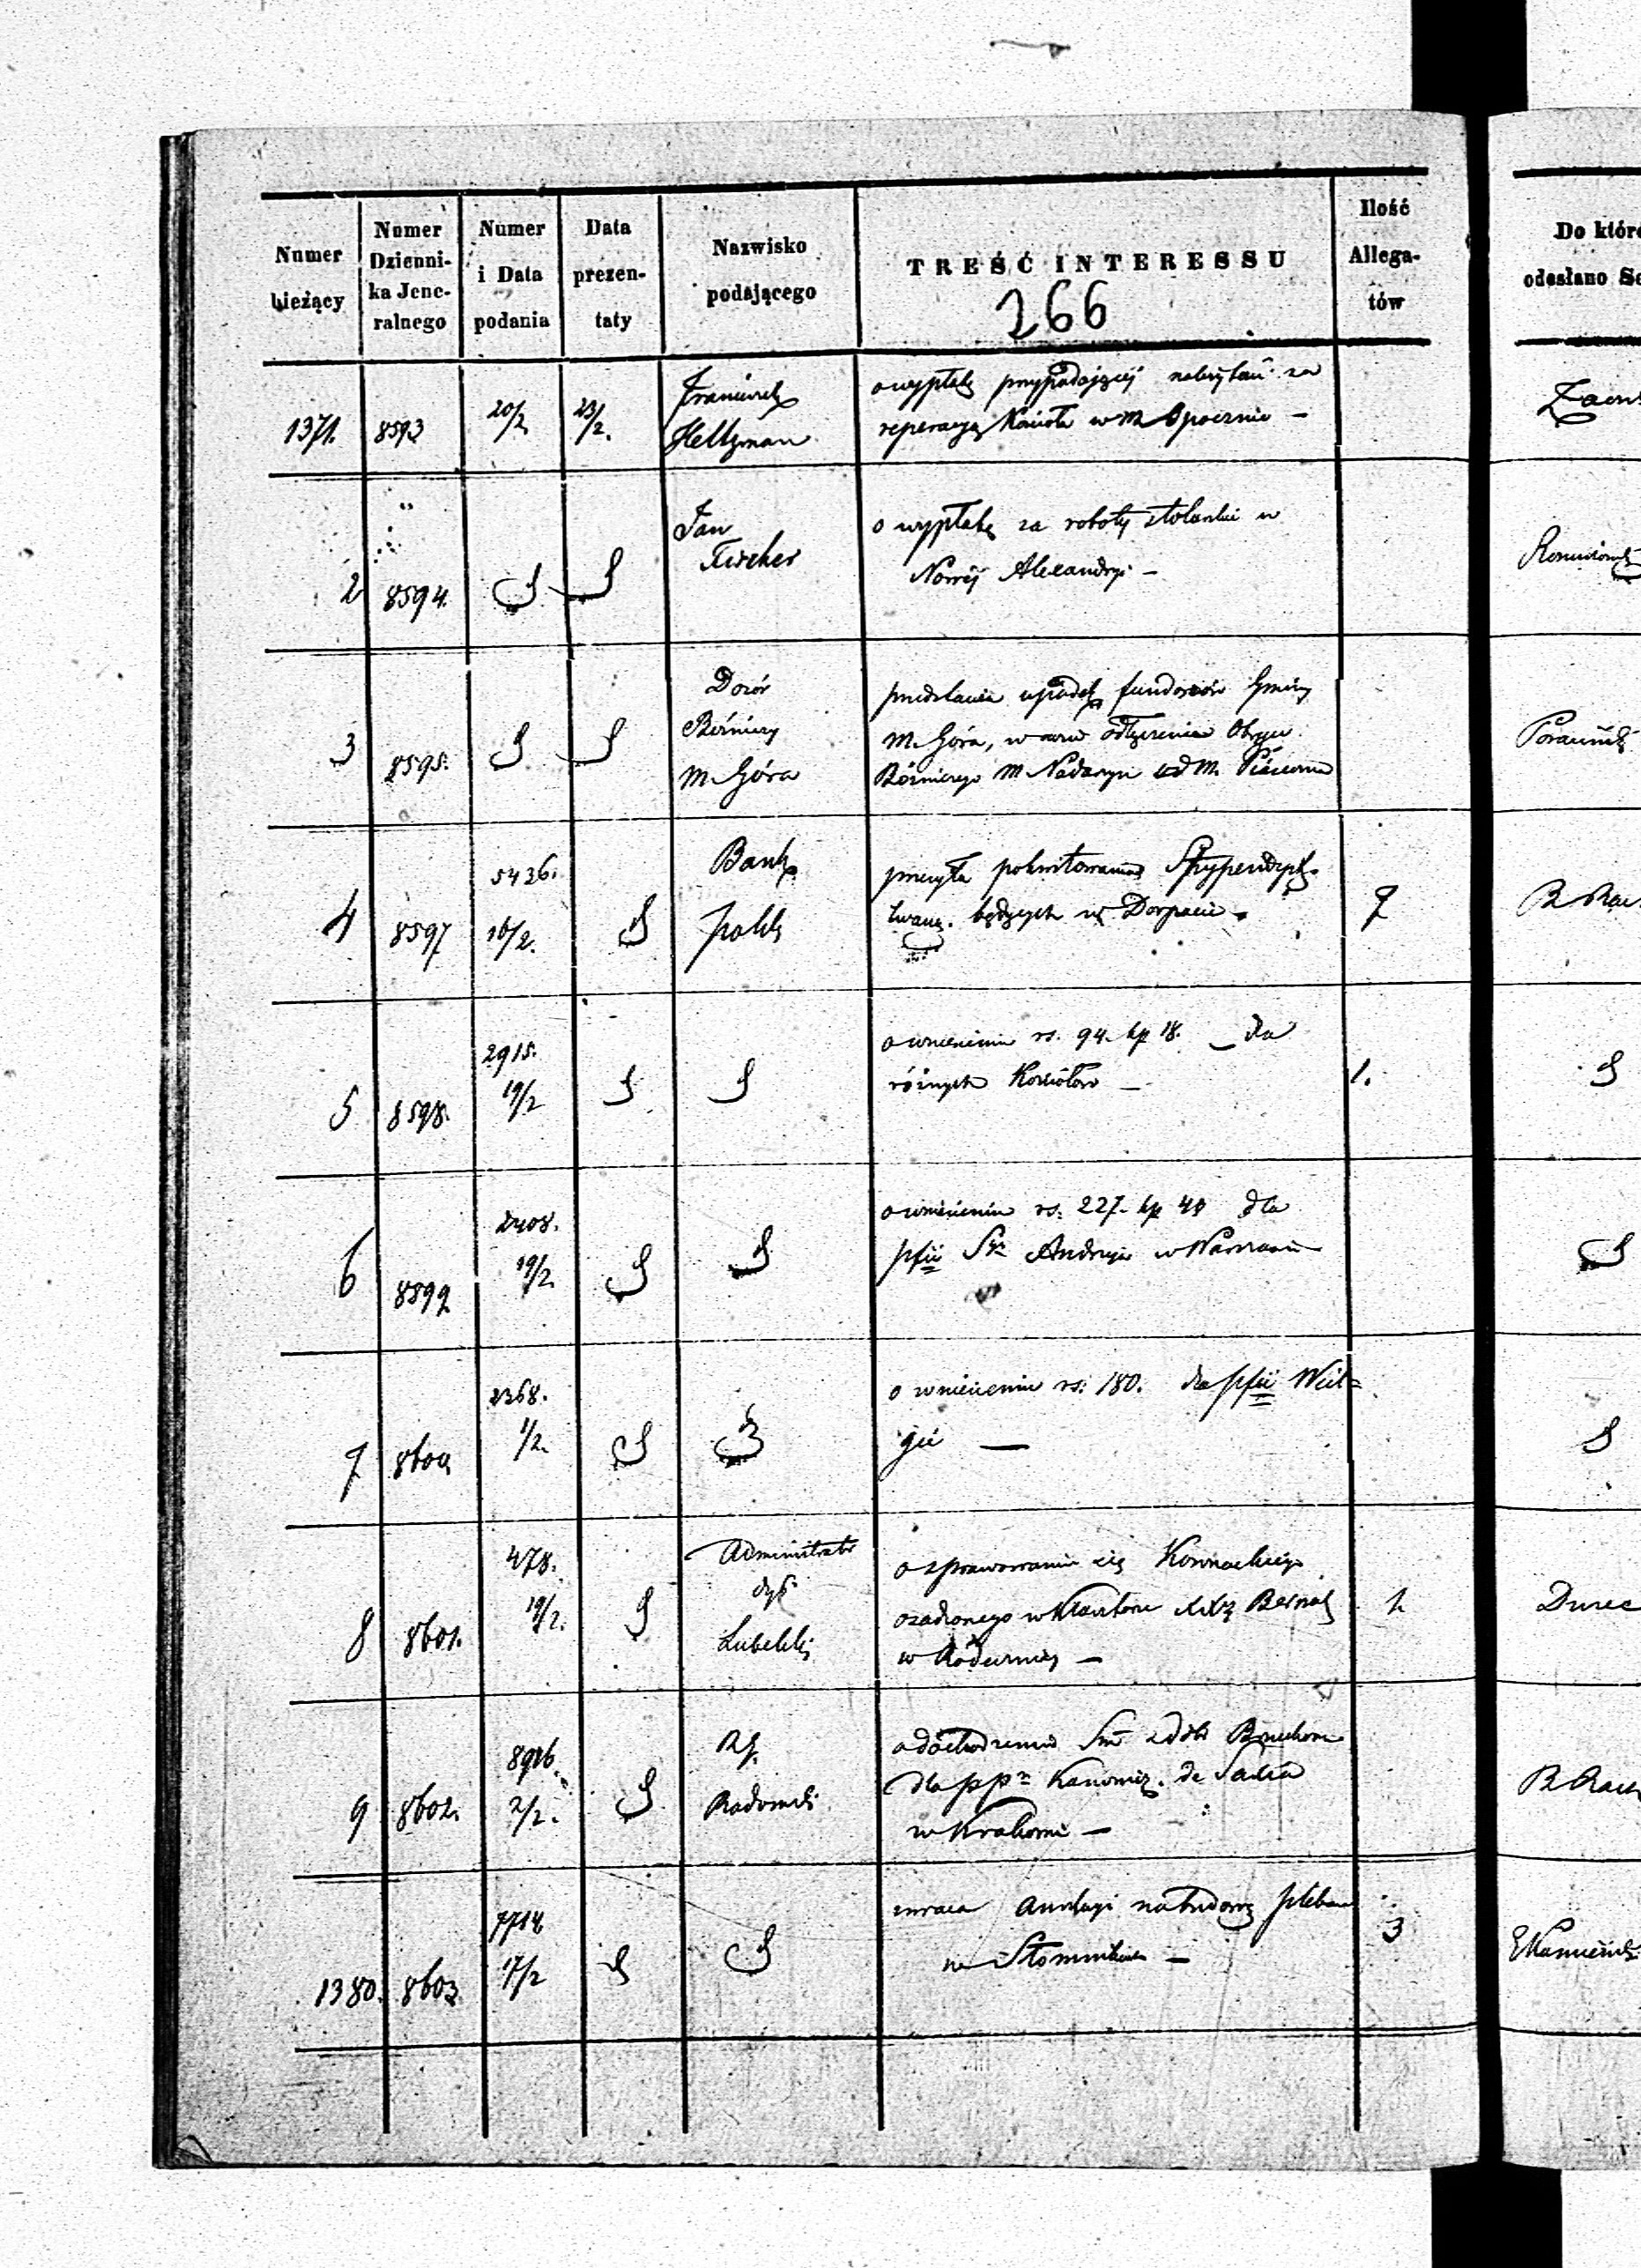 Numer bieżący
Numer Dziennika Jeneralnego
Numer i Data podania
Data prezentaty
Nazwisko podającego
TREŚĆ INTERESSU
266
Ilość Allegatów
Do któr
odesłano Se
1371. 8593 20/2. 23/2. Franciszek Heltzman
o wypłatę przypadającej należytości za
reperacyą Kościoła w M. Opocznie —
2 8594. Jan Fischer
o wypłatę za roboty stolarskie w
Nowéj Alexandryi —
3 8595. Dozór Bóżniczy M. Góra
przedstawia upadek funduszów Gminy
M. Góra, w razie odłączenia Okręgu
Bóżniczego M. Nadarzyn od M. Piaseczna
4 8597 5436. 16/2. Bank polski
przesyła pokwitowania Stypendystów
będących w Dorpacie. 7
5 8598. 2915. 19/2
o wniesieniu rs. 94. kp 18. — dla
różnych Kościołów — 1.
6 8599 2408. 19/2.
o wniesieniu rs. 227. kp 40 dla
pfii Sgo Andrzeja w Warszawie
7 8600 2368. 1/2.
o wniesieniu rs. 180. dla pfii Wiel=
gie —
8 8601. 478. 19/2. Administrator dyć. Lubelski
o sprawowaniu się Kownackiego
osadzonego w Klasztorze
w Radecznicy — 1.
Durec
9 8602. 8926. 2/2. RG. Radomski
o dochodzeniu z dóbr
dla Kanonicz. de Saxia
w Krakowie —
1380. 8603. 7714. 17/2
zwraca na budowę pleban
w Słomnikach — 3